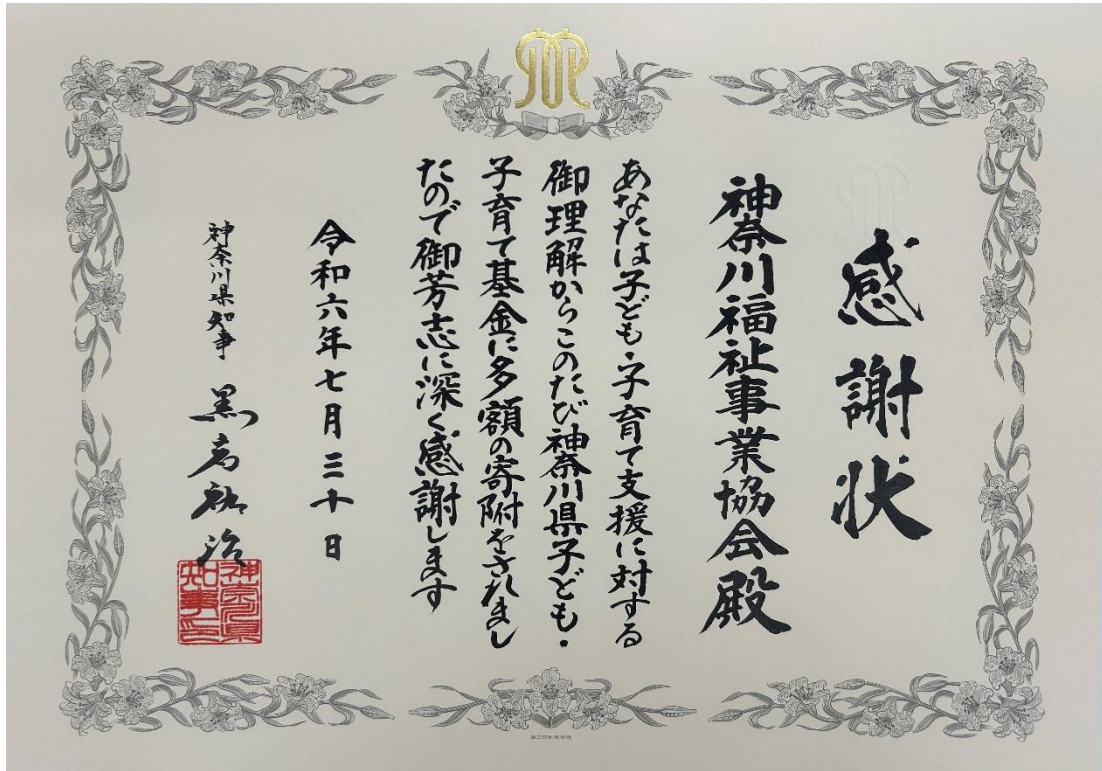 感謝状
神奈川福祉事業協会殿
あなたは子ども・子育て支援に対する
御理解からこのたび神奈川県子ども・
子育て基金に多額の寄附をされまし
たので御芳志に深く感謝します
令和六年七月三十日
神奈川県知事 黒岩祐治
神奈川県
知事之印